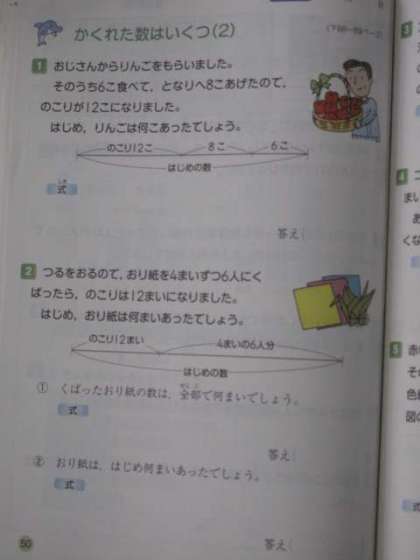 かくれた数はいくつ(2)
1 おじさんからりんごをもらいました。
そのうち6こ食べて、となりへ8こあげたので、
のこりが12こになりました。
はじめ、りんごは何こあったでしょう。
のこり12こ 8こ 6こ
はじめの数
式
答え(
2 つるをおるので、おり紙を4まいずつ6人にく
ばったら、のこりは12まいになりました。
はじめ、おり紙は何まいあったでしょう。
のこり12まい 4まいの6人分
はじめの数
① くばったおり紙の数は、全部で何まいでしょう。
式
答え(
② おり紙は、はじめ何まいあったでしょう。
式
答え(
50
3
4 つ
まい
あ
くな
5 赤
その
色紙
図の
式